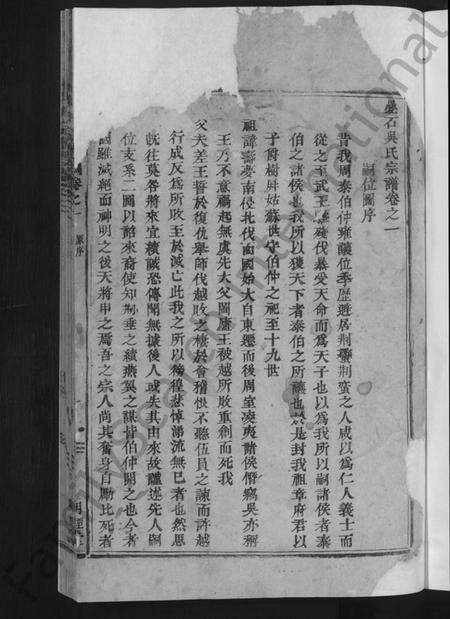 壘石吳氏宗譜卷之一
嗣位圖序
昔我周泰伯仲雍讓位季歷遊居荆蠻荆蛮之人咸以爲仁人義士而
從之至武王讓殘伐暴受天命而爲天子也以爲我所以嗣諸侯者泰
伯之諸侯也我所以獲天下者泰伯之所讓也於是封我祖章府君以
子爵樹屛姑蘇世守伯仲之祀至十九世
祖諱壽夢南侵北伐而國始大自東遷而後周室凌夷諸侯僭竊吳亦稱
王乃不意禍起無虞先大父闔廬王被越所敗重創而死我
父夫差王誓於復仇舉師伐越敗之棲於會稽恨不聽伍員之諫而許越
行成反爲所敗王於滅亡此我之所以悼悲涕流無已者也然思
旣往莫咎將來宜續誠恐傳聞無據後人或失其由來故謹述先人嗣
位支系二圖以詔來裔使知垂之績燕翼之謀皆伯仲開之也今者
國雖滅絕而神明之後天將申之焉吾之宗人尚其奮身自勵比死者
卷之一
原序
Family Search International